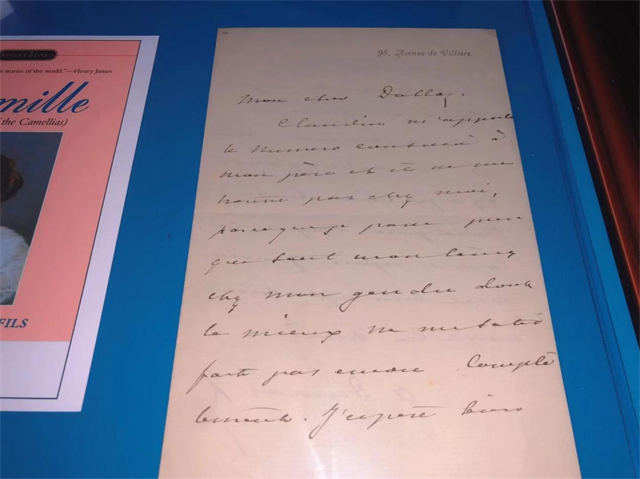 stories of the world."—Henry James
mille
the Camellias)
FILS
98, Avenue de Villiers
Mon cher Dalloz,
Claudin m'apporte
le numero consacré à
mon père et il ne me
trouve pas chez moi,
parceque je passe pres
que tout mon temps
chez mon gendre dont
le mieux ne me satis
fait pas encore complè
tement. J'espère bien